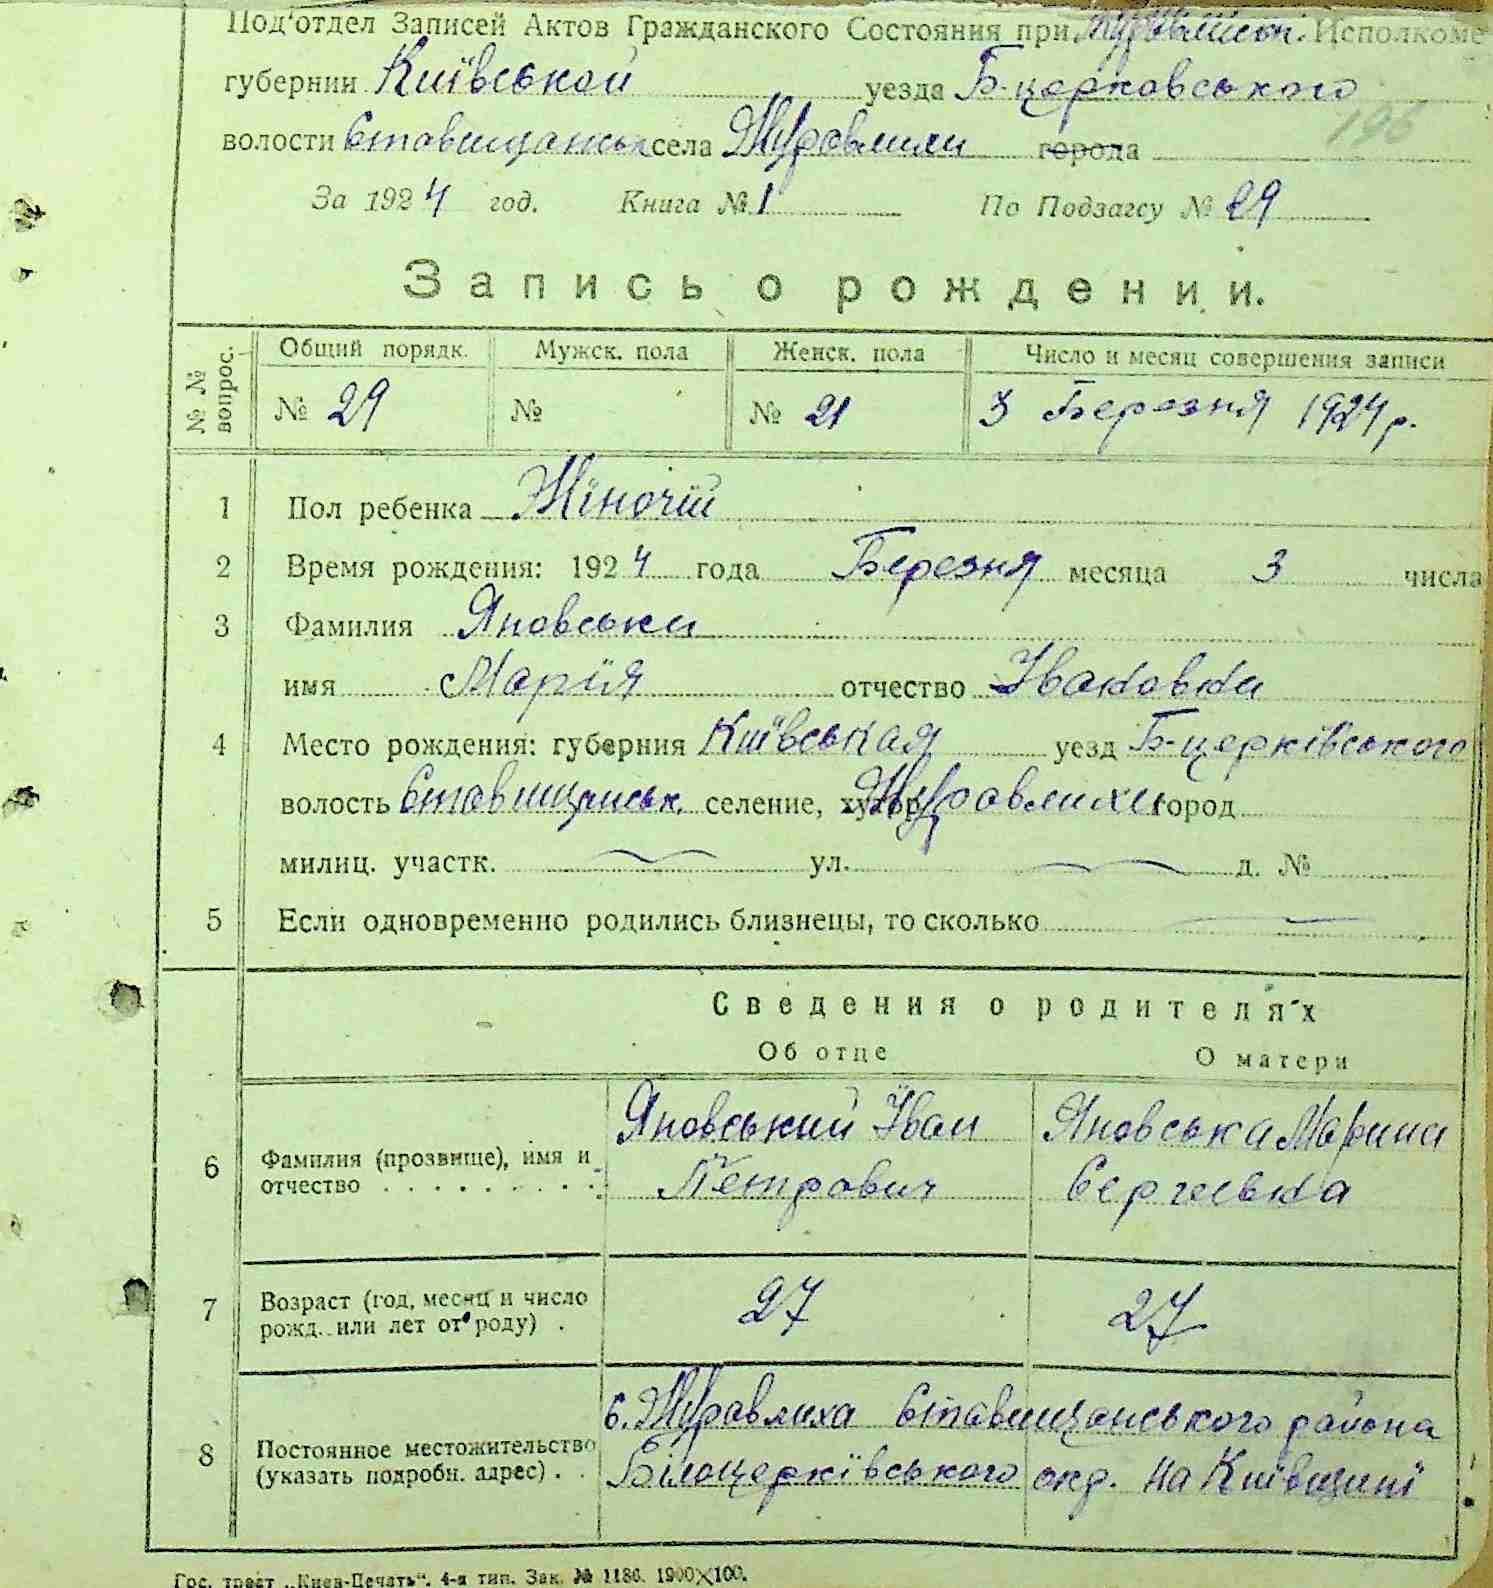 Под'отдел Записей Актов Гражданского Состояния при Журавлиськ. Исполкоме
губернии Київської уезда Б-церковського
196
волости Ставищанськ села Журавлихи города
За 1924 год. Книга № 1 По Подзагсу № 29
Запись о рождении.
№ № вопрос. Общий порядк. Мужск. пола Женск. пола Число и месяц совершения записи
№ 29 № № 21 3 Березня 1924 р.
1 Пол ребенка Жіночій
2 Время рождения: 1924 года Березня месяца 3 числа
3 Фамилия Яновськи
имя Марія отчество Івановна
4 Место рождения: губерния Київськая уезд Б-церківського
волость Ставищанськ. селение, хутор Журавлихи город
милиц. участк. ул. д. №
5 Если одновременно родились близнецы, то сколько
Сведения о родителях
Об отце О матери
Яновський Іван Яновська Марина
6 Фамилия (прозвище), имя и отчество Петрович Сергіевна
7 Возраст (год, месяц и число рожд. или лет от роду) 27 27
с. Журавлиха Ставищанського района
8 Постоянное местожительство (указать подробн. адрес) Білоцерківського окр. на Київщині
Гос. трест „Киев-Печать“. 4-я тип. Зак. № 1186. 1900×100.